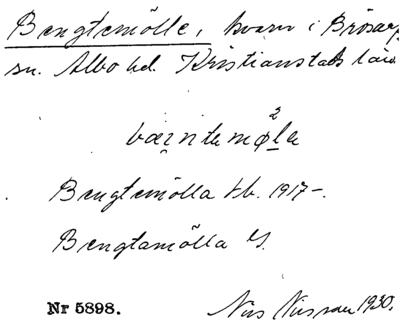 Bengtemölle, kvarn i Brösarp
sn. Albo hd. Kristianstads län
bæɪntemøla 2
Bengtemölla kb. 1917-.
Bengtamölla GS.
Nr 5898. Nils Nilsson 1930.